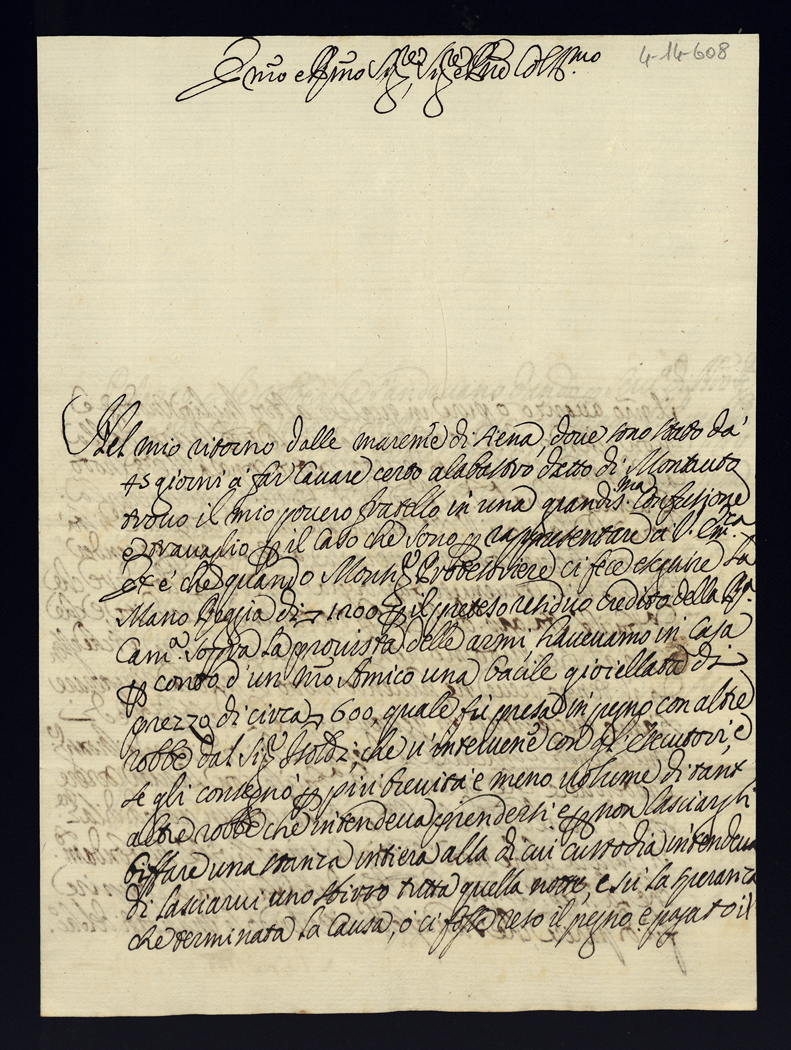 4-14-608
Em̃o e Rm̃o Sig.re, Sig.re e Pñe Col.mo
Nel mio ritorno dalle marem̃e di Siena, dove sono stato da
45 giorni à far cavare certo alabastro detto di Montauto
trovo il mio povero fratello in una grandis.ma confusione
e travaglio p il caso che sono p rappresentare à V. Em.za
et è che quando Mons.r Tesoriere ci fece eseguire la
Mano Reggia di 1200 p il preteso residuo credito della R.
Cam.a sopra la provista delle armi, havevamo in casa
p conto d'un ñro Amico una bacile gioiellata di
prezzo di circa 600, quale fù presa in pegno con altre
robbe dal Sig.r, che v'intervenne con gl'esecutori, e
se gli consegnò p più brevità e meno volume di tant
altre robbe che intendeva prendersi e p non lasciargli
biffare una stanza intiera alla di cui custodia intendeva
di lasciarvi uno sbirro tutta quella notte, e sù la speranza
che terminata la causa, ò ci fosse reso il pegno, e pagato il